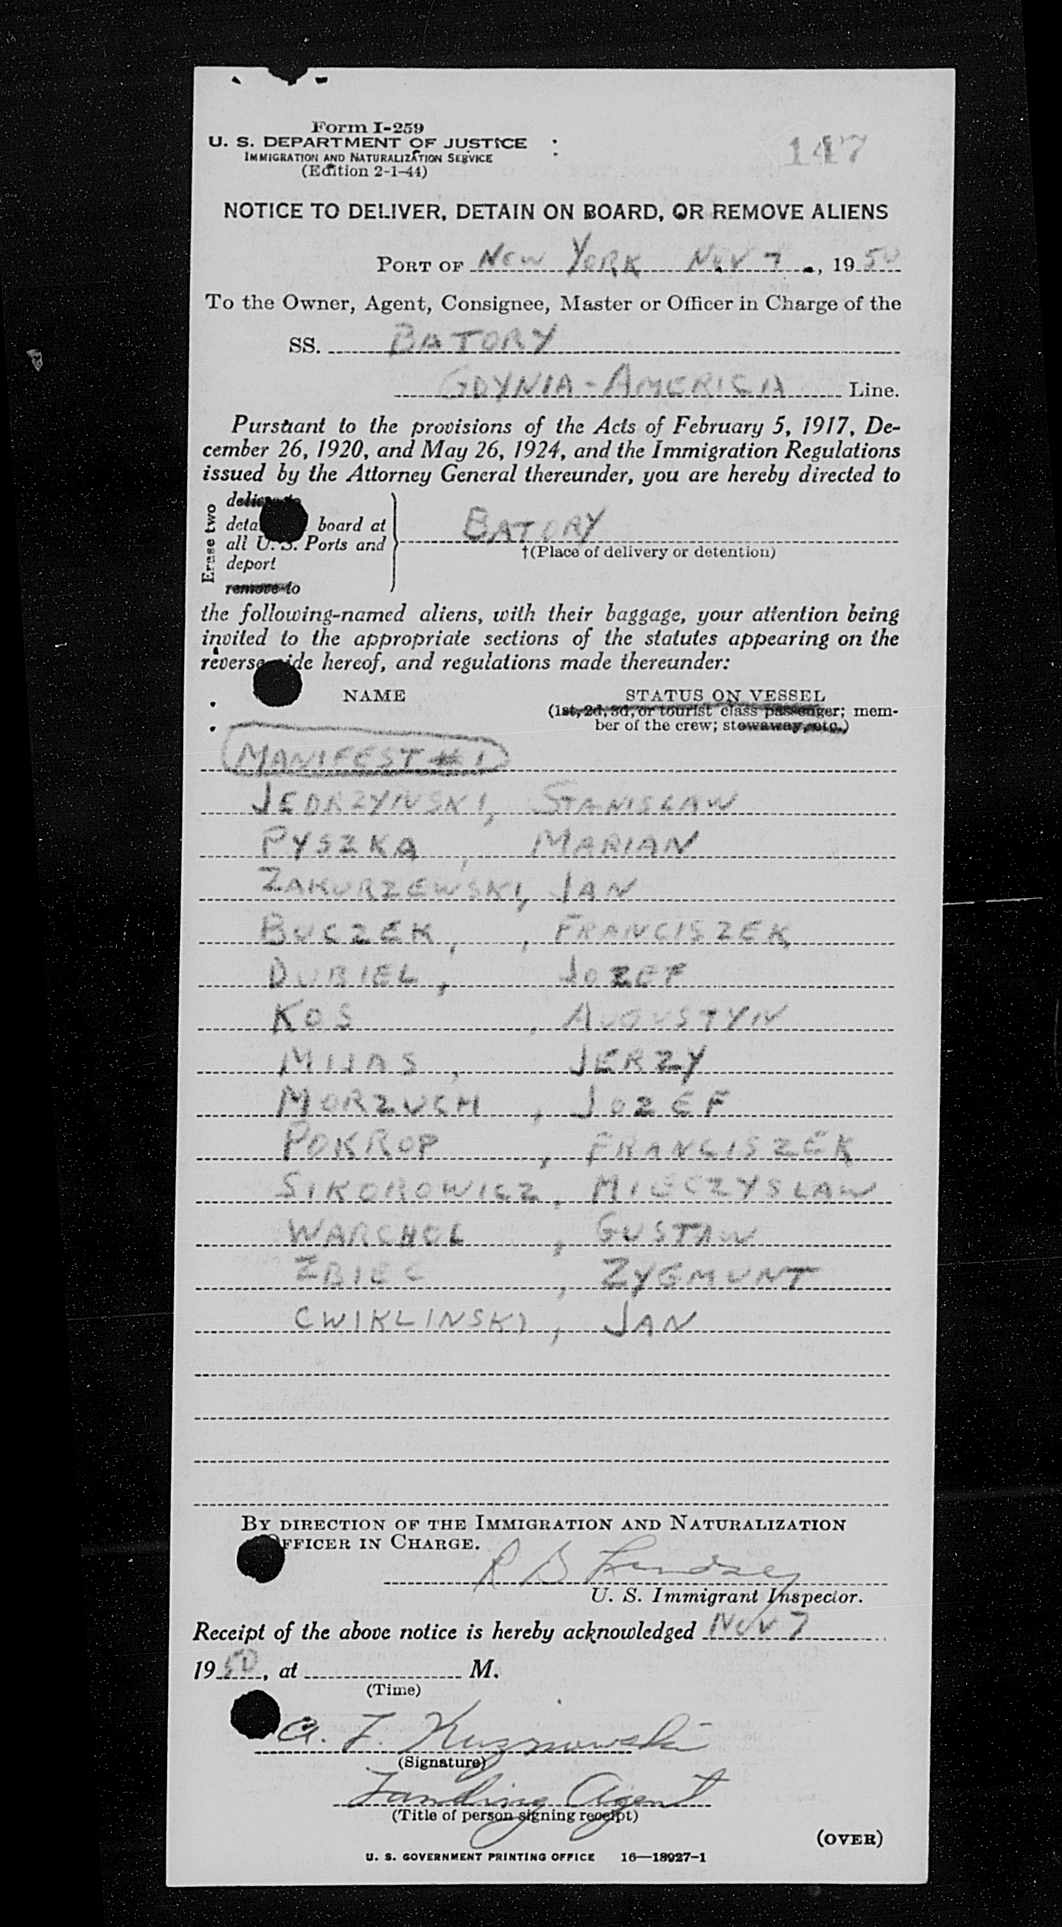 Form I-259
U. S. DEPARTMENT OF JUSTICE
IMMIGRATION AND NATURALIZATION SERVICE
(Edition 2-1-44)
147
NOTICE TO DELIVER, DETAIN ON BOARD, OR REMOVE ALIENS
PORT OF NEW YORK NOV 7, 1950
To the Owner, Agent, Consignee, Master or Officer in Charge of the
SS. BATORY
GDYNIA-AMERICA Line.
Pursuant to the provisions of the Acts of February 5, 1917, De-
cember 26, 1920, and May 26, 1924, and the Immigration Regulations
issued by the Attorney General thereunder, you are hereby directed to
Erase two
deliver to
deta board at
all U. S. Ports and
deport
remove to
BATORY
†(Place of delivery or detention)
the following-named aliens, with their baggage, your attention being
invited to the appropriate sections of the statutes appearing on the
reverse side hereof, and regulations made thereunder:
NAME STATUS ON VESSEL
(1st, 2d, 3d, or tourist class passenger; mem-
ber of the crew; stowaway, etc.)
MANIFEST #1
JEDRZYNSKI, STANISLAW
PYSZKA, MARIAN
ZAKURZEWSKI, JAN
BUCZEK, , FRANCISZEK
DUBIEL, JOZEF
KOS, AUGUSTYN
MIJAS, JERZY
MORZUCH, JOZEF
POKROP, FRANCISZEK
SIKOROWICZ, MIECZYSLAW
WARCHOL, GUSTAW
ZBIEC, ZYGMUNT
CWIKLINSKI, JAN
BY DIRECTION OF THE IMMIGRATION AND NATURALIZATION
OFFICER IN CHARGE.
R B Lindsey
U. S. Immigrant Inspector.
Receipt of the above notice is hereby acknowledged NOV 7
1950, at M.
(Time)
A. F. Kuznowski
(Signature)
Landing Agent
(Title of person signing receipt)
(OVER)
U. S. GOVERNMENT PRINTING OFFICE 16—18927-1